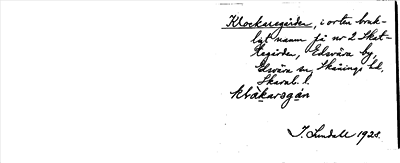 Klockaregården, i orten bruk-
ligt namn på nr 2 Skat-
tegården, Edsvära by,
Edsvära sn Skånings hd,
Skarab. l.
klɔ̀karsgán
J. Lundahl 1925.